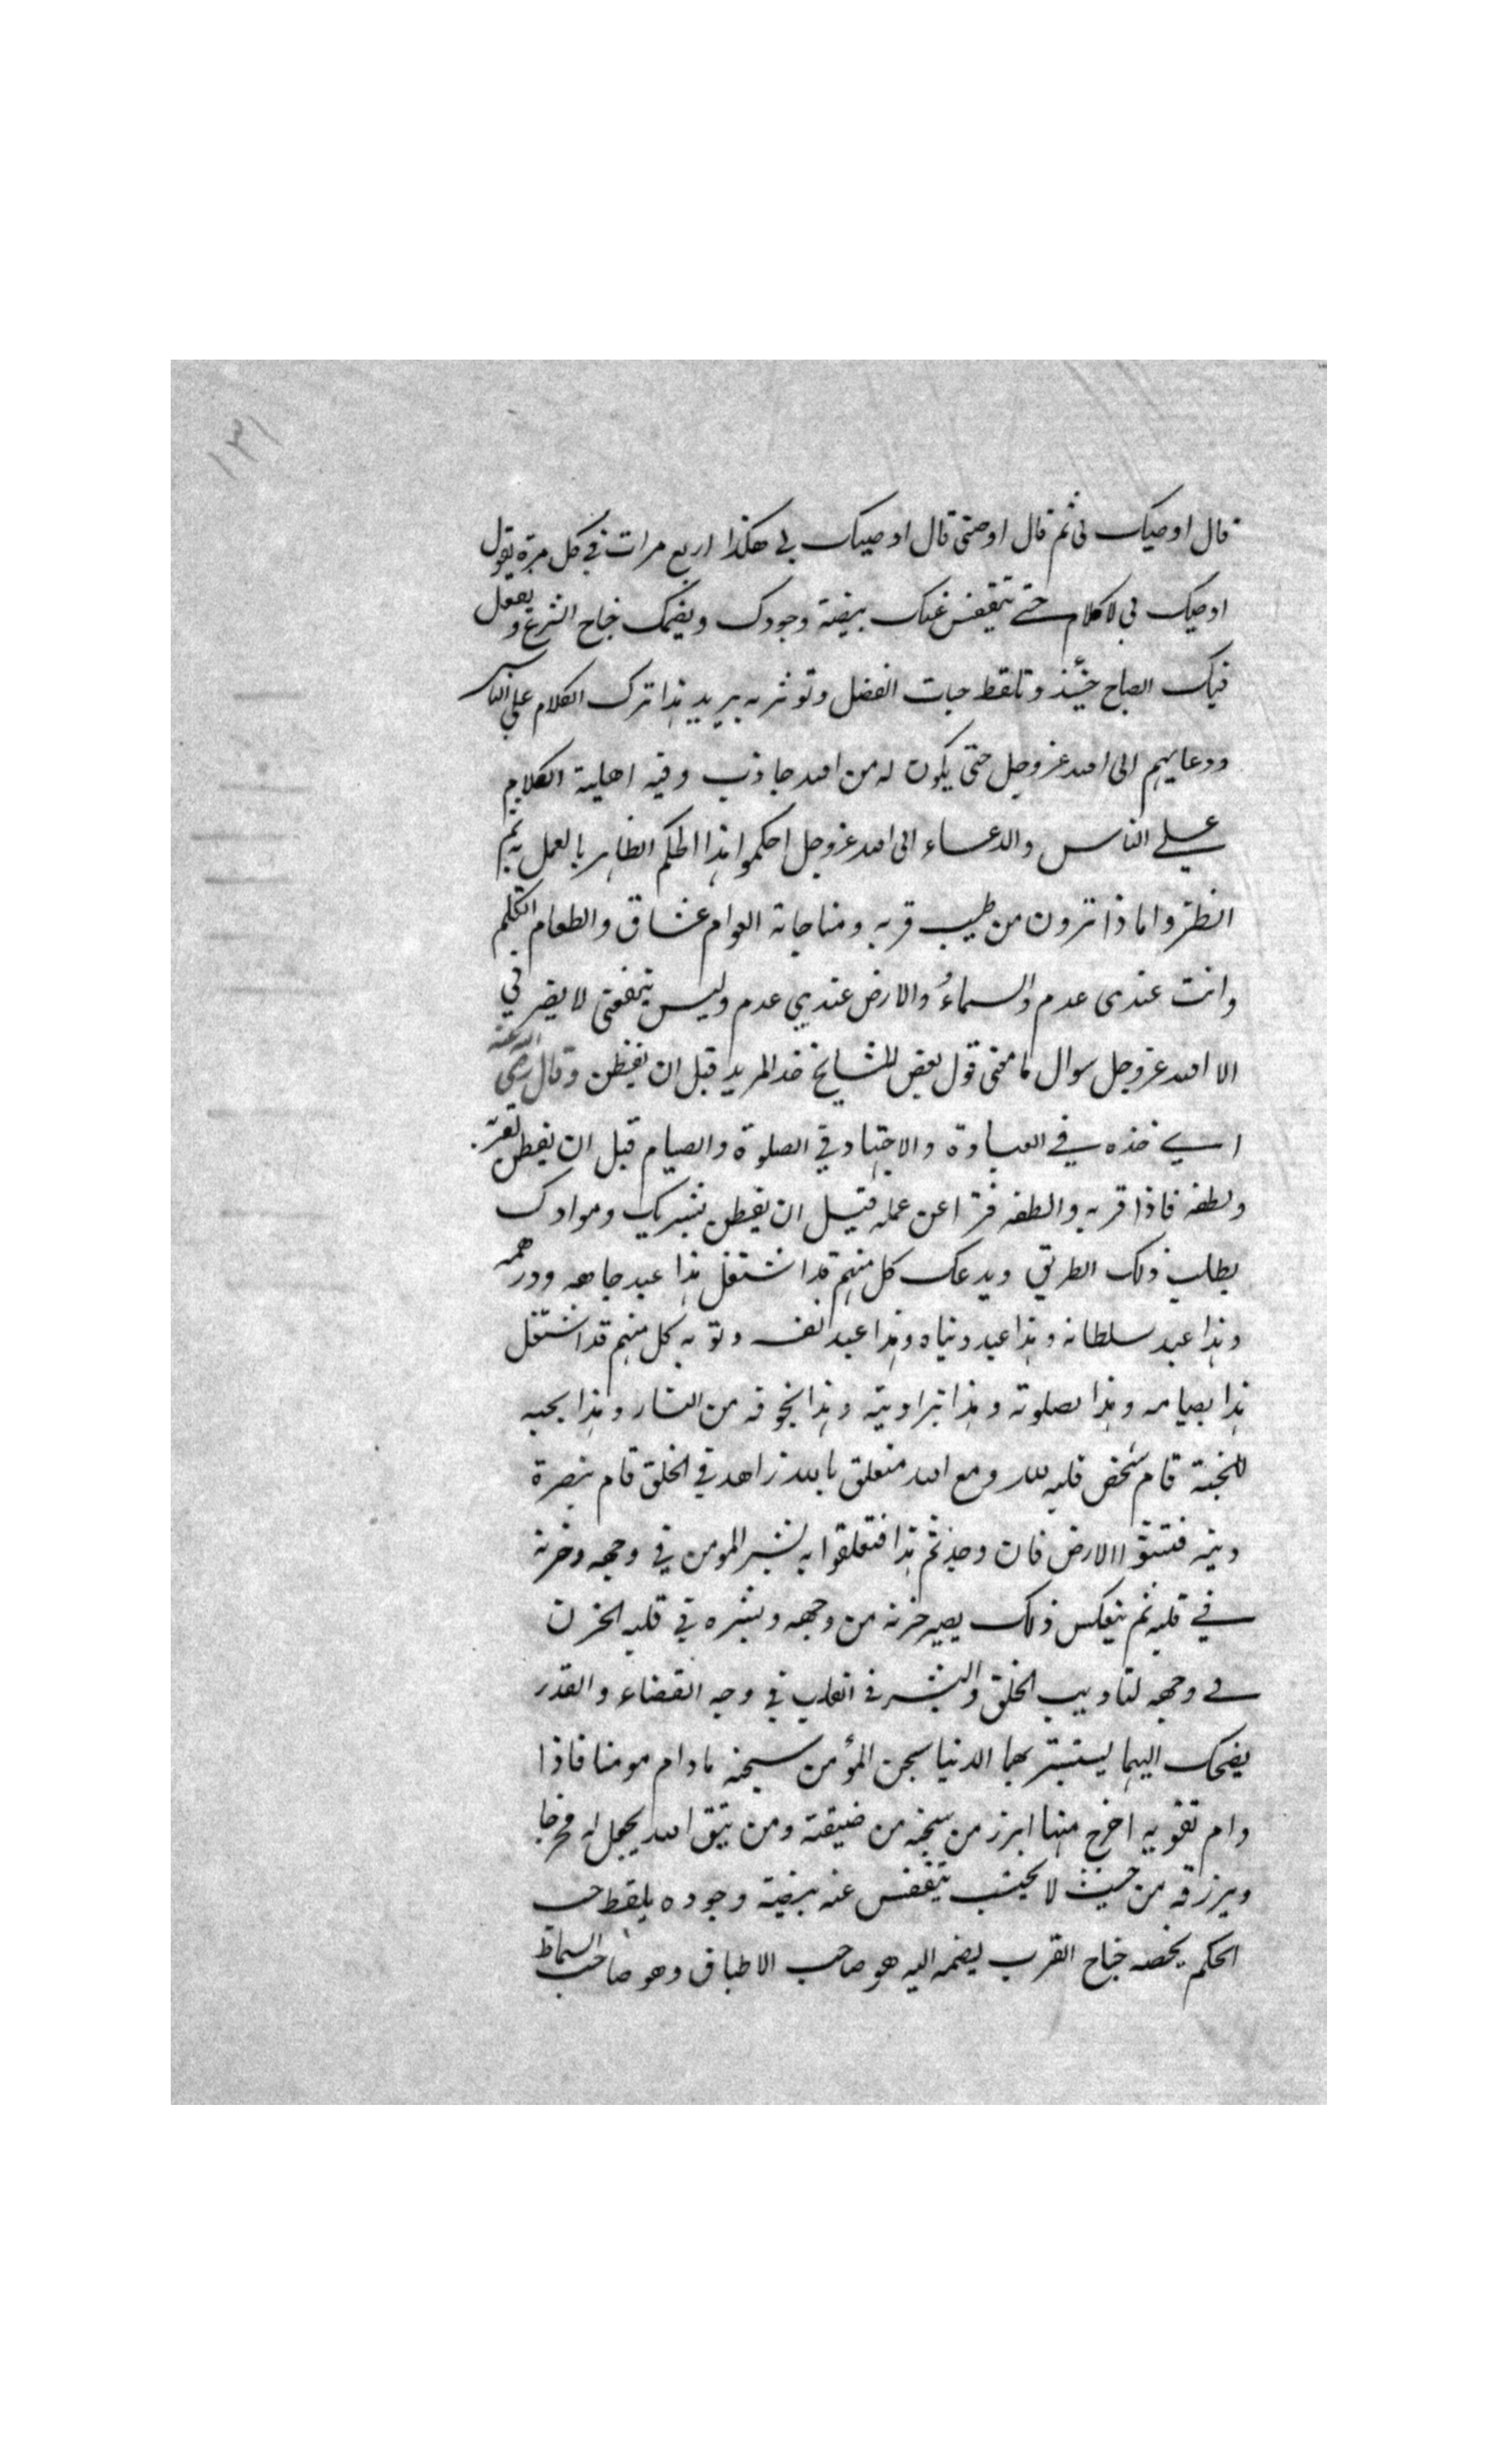 ١٣١
قال اوصيك بى ثم قال اوصنى قال اوصيك بي هكذا اربع مرات في كل مرة يقول
اوصيك بى لا كلام حتى تتقفس عنك بيضة وجودك ويضمك جناح الشرع ويعمل
فيك الصاح حينئذ وتلقط حبات الفضل وتوثر به يريد بهذا ترك الكلام على الناس
ودعايهم الى الله عز وجل حتى يكون له من الله جاذب وفيه اهلية الكلام
على الناس والدعاء الى الله عز وجل احكموا هذا الحكم الظاهر بالعمل به ثم
انظروا ماذا ترون من طيب قربه ومناجاته العوام عشاق والطعام
وانت عندى عدم والسماء والارض عندي عدم وليس ينفعنى لا يضرني
الا الله عز وجل سوال ما معنى قول بعض المشايخ خذ المريد قبل ان يفطن وقال رضي الله عنه
اي خذه في العبادة والاجتهاد في الصلوة والصيام قبل ان يفطن
ولطفه فاذا قربه والطفه فترا عن عمله قبل ان يفطن بشريك وموادك
يطلب ذلك الطريق ويدعك كل منهم قد اشتغل هذا عبد جاهه ودرهمه
وهذا عبد سلطانه وهذا عبد دنياه وهذا عبد كل منهم قد اشتغل
هذا بصيامه وهذا بصلوته وهذا بزاويته وهذا بخوفه من النار وهذا بحبه
للجنة قام شخص قلبه لله ومع الله متعلق بالله زاهد في الخلق قام بنصرة
دينه الارض فان وجدتم هذا فتعلقوا به بشر المومن في وجهه وحزنه
في قلبه ثم ينعكس ذلك يصير حزنه من وجهه وبشره في قلبه الحزن
في وجهه لتاديب الخلق والبشر في القلب في وجه القضاء والقدر
يضحك اليهما ليستبشر بهما الدنيا سجن المؤمن سجنه ما دام مومنا فاذا
دام تقويه اخرج منها ابرز من سجنه من ضيقته ومن يتق الله يجعل له مخرجا
ويرزقه من حيث لا يحتسب يتقفس عنه بيضة وجوده يلقط حب
الحكم يحضنه جناح القرب يضمه اليه هو صاحب الاطباق وهو صاحب السماط